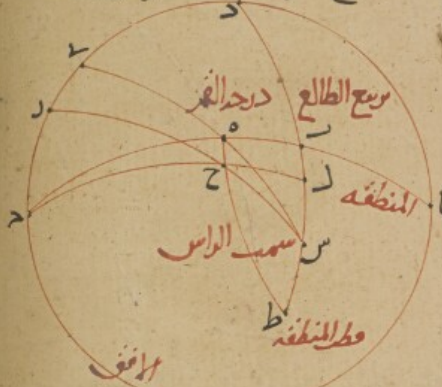 د
تربيع الطالع
درجة القمر
ه
ح
ل
المنطقه
س
سمت الراس
ط
قطر المنطقه
الافق